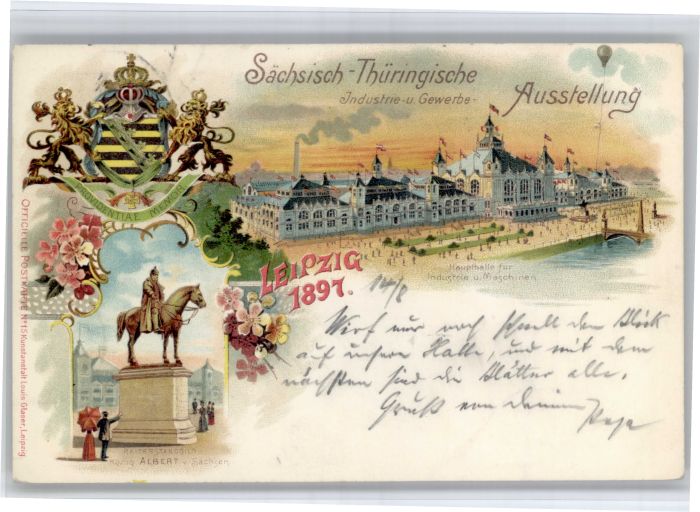 Sächsisch-Thüringische
Industrie-u. Gewerbe-
Ausstellung
PROVIDENTIAE MEMOR
LEIPZIG
1897.
Haupthalle für
Industrie u. Maschinen
14/8
Wirf nur noch schnell den Blick
auf unsere Halle, und mit dem
nächsten sind die Blätter alle.
Gruß von Deinem Papa
REITERSTANDBILD
König ALBERT v. Sachsen
OFFICIELLE POSTKARTE No 15 Kunstanstalt Louis Glaser, Leipzig